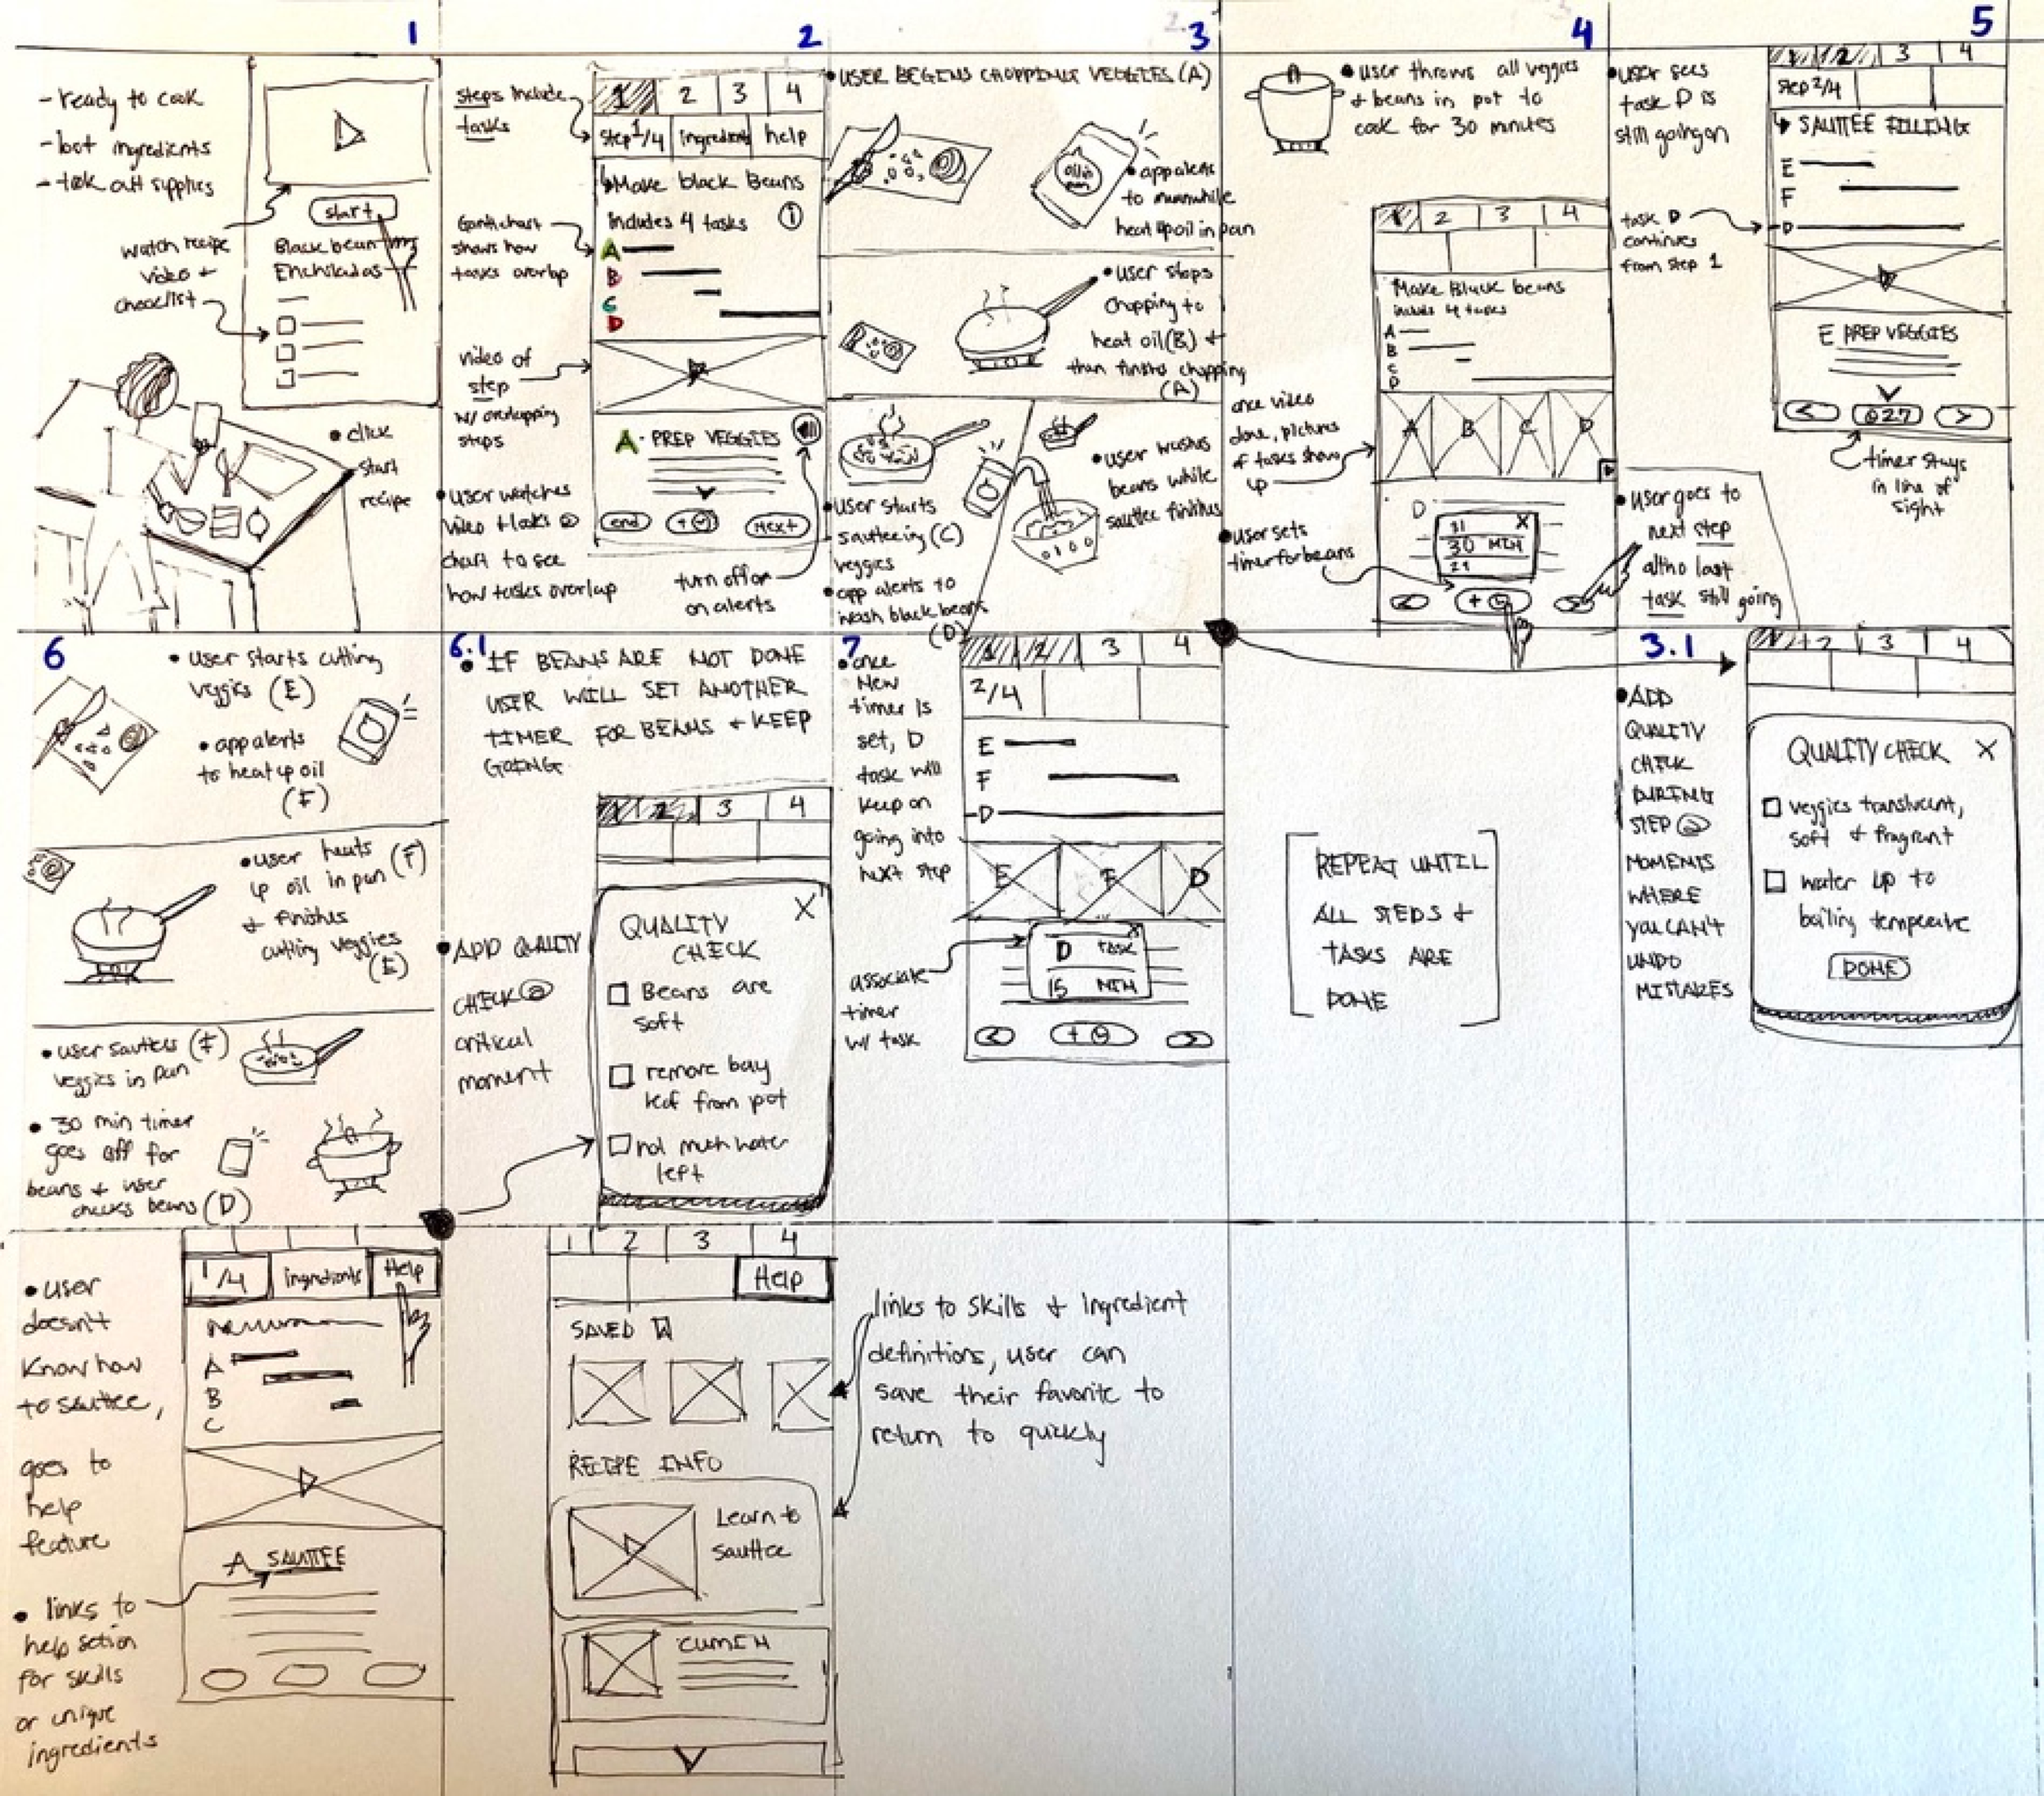 1
- ready to cook
- bot ingredients
- took out supplies
start
Black bean
Enchiladas
watch recipe
video +
checklist
• click
start
recipe
2
steps include
tasks
1 2 3 4
Step 1/4 ingredients help
↳Make black Beans
includes 4 tasks i
Gantt chart
shows how
tasks overlap
A
B
C
D
video of
step
w/ overlapping
steps
A - PREP VEGGIES
end + Next
• user watches
video + looks @
chart to see
how tasks overlap
turn off or
on alerts
3
• USER BEGINS CHOPPING VEGGIES (A)
oil in
pan
• app alerts
to meanwhile
heat up oil in pan
• user stops
chopping to
heat oil (B) +
than finishes chopping
(A)
• user starts
sauteeing (C)
veggies
• app alerts to
wash black beans
(D)
• user washes
beans while
sauttee finishes
4
• user throws all veggies
+ beans in pot to
cook for 30 minutes
1 2 3 4
Make Black beans
includes 4 tasks
A
B
C
D
once video
done, pictures
of tasks show
up
A B C D
• user sets
timer for beans
D
31 X
30 MIN
29
< + >
• user goes to
next step
altho last
task still going
5
• user sees
task D is
still going on
1 2 3 4
Step 2/4
↳ SAUTTEE FILLING
E
F
D
task D
continues
from step 1
E PREP VEGGIES
< 27 >
timer stays
in line of
sight
6
• user starts cutting
veggies (E)
• app alerts
to heat up oil
(F)
• user heats
up oil in pan (F)
+ finishes
cutting veggies
(E)
• user sauttees (F)
veggies in pan
• 30 min timer
goes off for
beans + user
checks beans (D)
6.1
• IF BEANS ARE NOT DONE
USER WILL SET ANOTHER
TIMER FOR BEANS + KEEP
GOING
1 2 3 4
• ADD QUALITY
CHECK @
critical
moment
QUALITY X
CHECK
Beans are
soft
remove bay
leaf from pot
not much water
left
7
• once
new
timer is
set, D
task will
keep on
going into
next step
1 2 3 4
2/4
E
F
D
E F D
associate
timer
w/ task
X
D TASK
15 MIN
< + >
[REPEAT UNTIL
ALL STEPS +
TASKS ARE
DONE]
3.1
• ADD
QUALITY
CHECK
DURING
STEP @
MOMENTS
WHERE
YOU CAN'T
UNDO
MISTAKES
1 2 3 4
QUALITY CHECK X
veggies translucent,
soft + fragrant
water up to
boiling temperate
DONE
• user
doesn't
know how
to sauttee,
goes to
help
feature
1/4 ingredients Help
A
B
C
A SAUTTEE
• links to
help setion
for skills
or unique
ingredients
1 2 3 4
Help
SAVED
RECIPE INFO
Learn to
sauttee
CUMIN
links to skills + ingredient
definitions, user can
save their favorite to
return to quickly